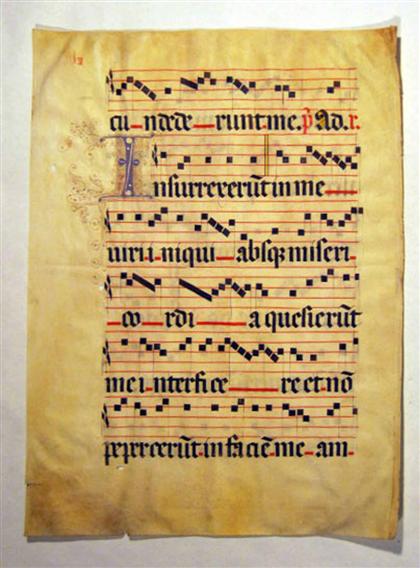 cu-ndede-runt me. p̄ Ad. r.
Insurrexerūt in me
uiri i-niqui-absqꝫ miseri-
-co-rdi-a quesierūt
me i-nterfice-re et nō
peprcerūt in faciē me-am-